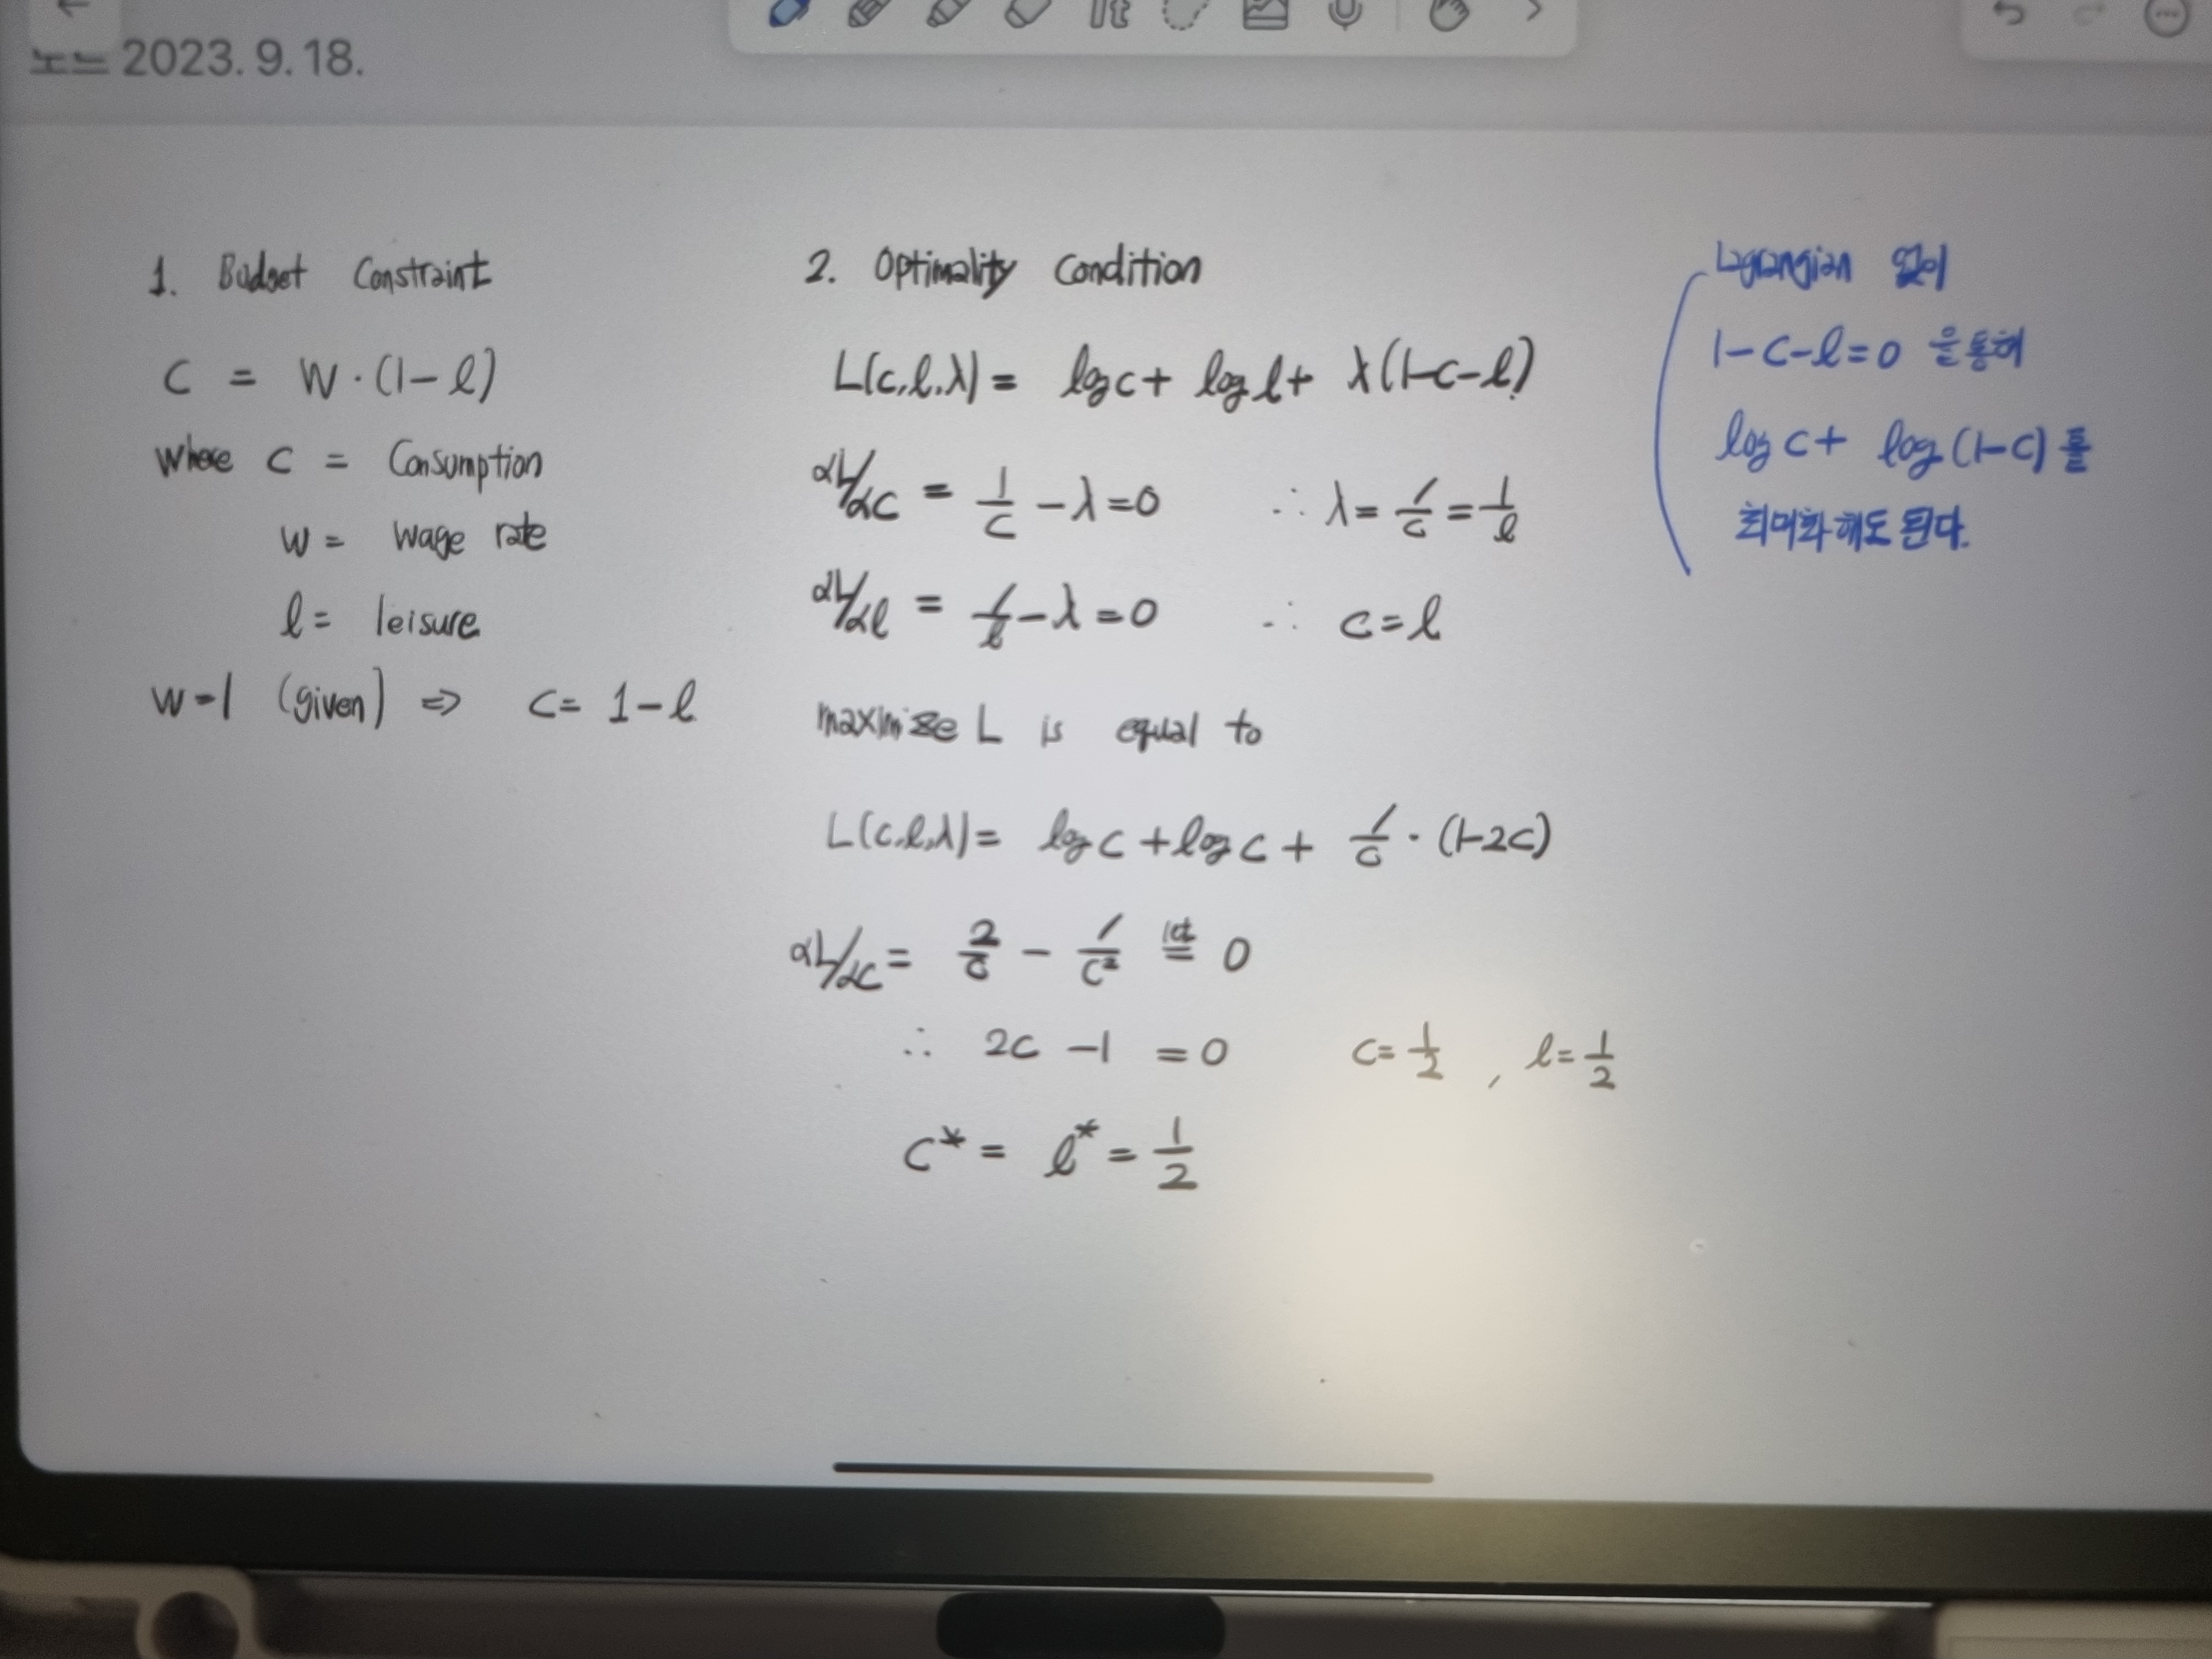 노느 2023. 9. 18.
1. Budget Constraint
C = W · (1-ℓ)
where C = Consumption
w = wage rate
ℓ = leisure
w=1 (given) ⇒ C = 1-ℓ
2. Optimality Condition
L(c,ℓ,λ) = log c + log ℓ + λ(1-c-ℓ)
∂L/∂c = 1/c - λ = 0 ∴ λ = 1/c = 1/ℓ
∂L/∂ℓ = 1/ℓ - λ = 0 ∴ c = ℓ
maximize L is equal to
L(c,ℓ,λ) = log c + log c + 1/c · (1-2c)
∂L/∂c = 2/c - 1/c² let = 0
∴ 2c - 1 = 0 c = 1/2 , ℓ = 1/2
c* = ℓ* = 1/2
Lagrangian 없이
1-c-ℓ=0 을 통해
log c + log (1-c) 를
최대화 해도 된다.